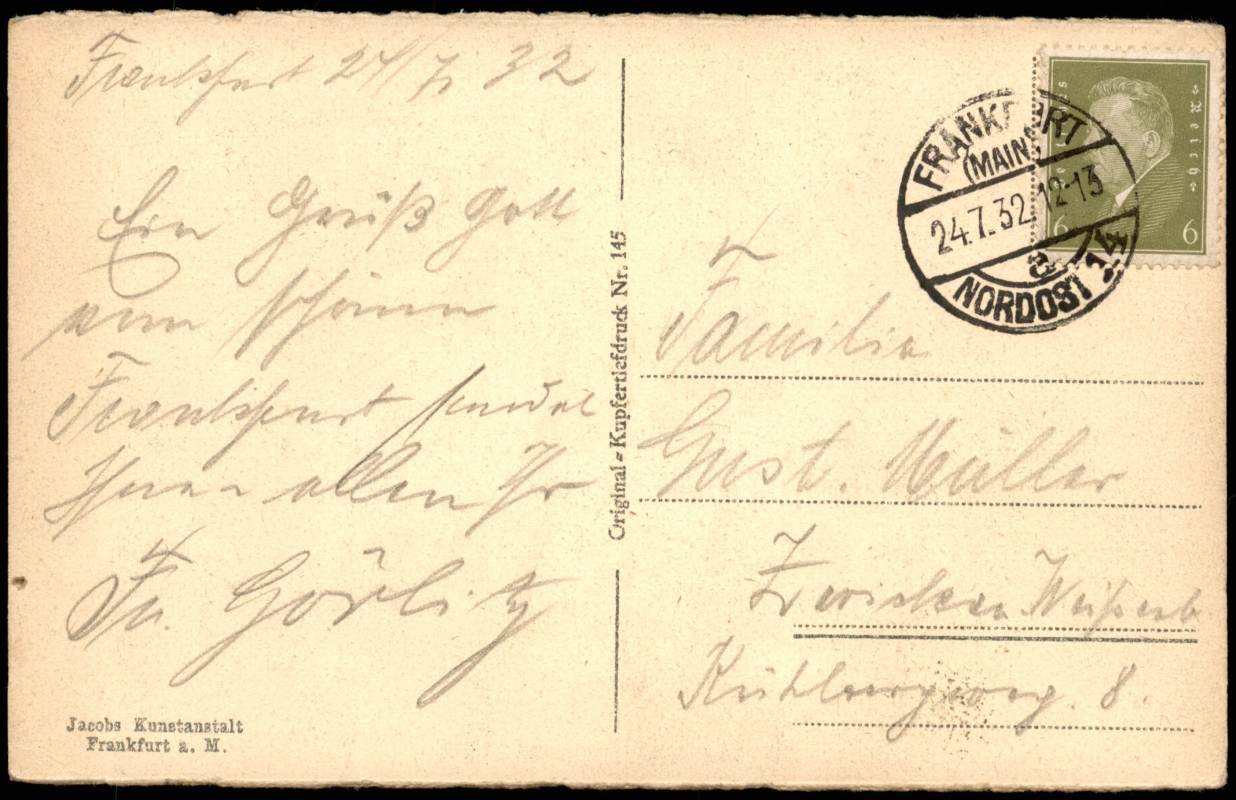 Frankfurt 24/7. 32
Ein Grüß Gott
vom schönen
Frankfurt sendet
Ihnen allen Ihr
Fr. Görlitz
Jacobs Kunstanstalt
Frankfurt a. M.
Original=Kupfertiefdruck Nr. 145
FRANKFURT
(MAIN)
24.7.32. 12-13
NORDOST 14
6 6
Familie
Gust. Müller
Zwickau Weißenb
Kühlbergweg. 8.